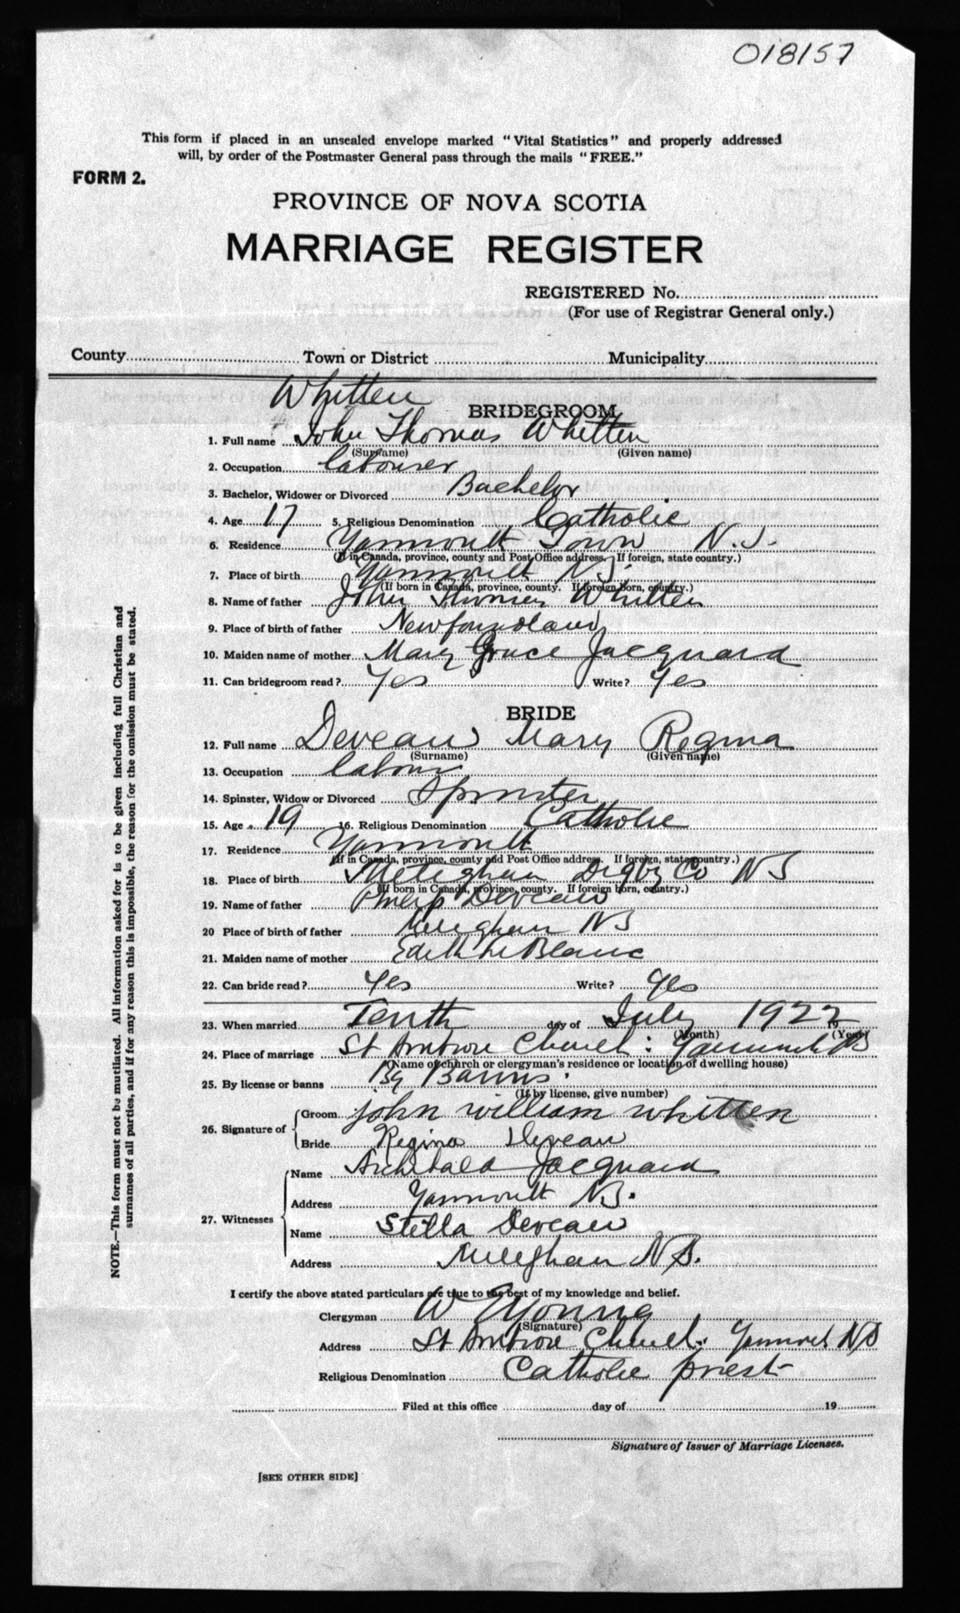 018157
This form if placed in an unsealed envelope marked "Vital Statistics" and properly addressed
will, by order of the Postmaster General pass through the mails "FREE."
FORM 2.
PROVINCE OF NOVA SCOTIA
MARRIAGE REGISTER
REGISTERED No.
(For use of Registrar General only.)
County Town or District Municipality
Whitten
BRIDEGROOM
1. Full name John Thomas Whitten
(Surname) (Given name)
2. Occupation labourer
3. Bachelor, Widower or Divorced Bachelor
4. Age 17 5. Religious Denomination Catholic
6. Residence Yarmouth Town N.S.
(If in Canada, province, county and Post Office address. If foreign, state country.)
7. Place of birth Yarmouth N.S.
(If born in Canada, province, county. If foreign born, country.)
8. Name of father John Thomas Whitten
9. Place of birth of father Newfoundland
10. Maiden name of mother Mary Grace Jacquard
11. Can bridegroom read? Yes Write? Yes
BRIDE
12. Full name Deveau Mary Regina
(Surname) (Given name)
13. Occupation labour
14. Spinster, Widow or Divorced Spinster
15. Age 19 16. Religious Denomination Catholic
17. Residence Yarmouth
(If in Canada, province, county and Post Office address. If foreign, state country.)
18. Place of birth Meteghan Digby Co NS
(If born in Canada, province, county. If foreign born, country.)
19. Name of father Philip Deveau
20 Place of birth of father Meteghan NS
21. Maiden name of mother Edith LeBlanc
22. Can bride read? Yes Write? Yes
23. When married Tenth day of July 1922 19
(Month) (Year)
24. Place of marriage St Ambrose Church: Yarmouth NS
(Name of church or clergyman's residence or location of dwelling house)
25. By license or banns By Banns.
(If by license, give number)
26. Signature of Groom john william whitten
Bride Regina Deveau
27. Witnesses Name Archibald Jacquard
Address Yarmouth NS.
Name Stella Deveau
Address Meteghan NS.
I certify the above stated particulars are true to the best of my knowledge and belief.
Clergyman W Young
(Signature)
Address St Ambrose Church. Yarmouth NS
Religious Denomination Catholic priest
Filed at this office day of 19
Signature of Issuer of Marriage Licenses.
[SEE OTHER SIDE]
NOTE.—This form must not be mutilated. All information asked for is to be given including full Christian and
surnames of all parties, and if for any reason this is impossible, the reason for the omission must be stated.